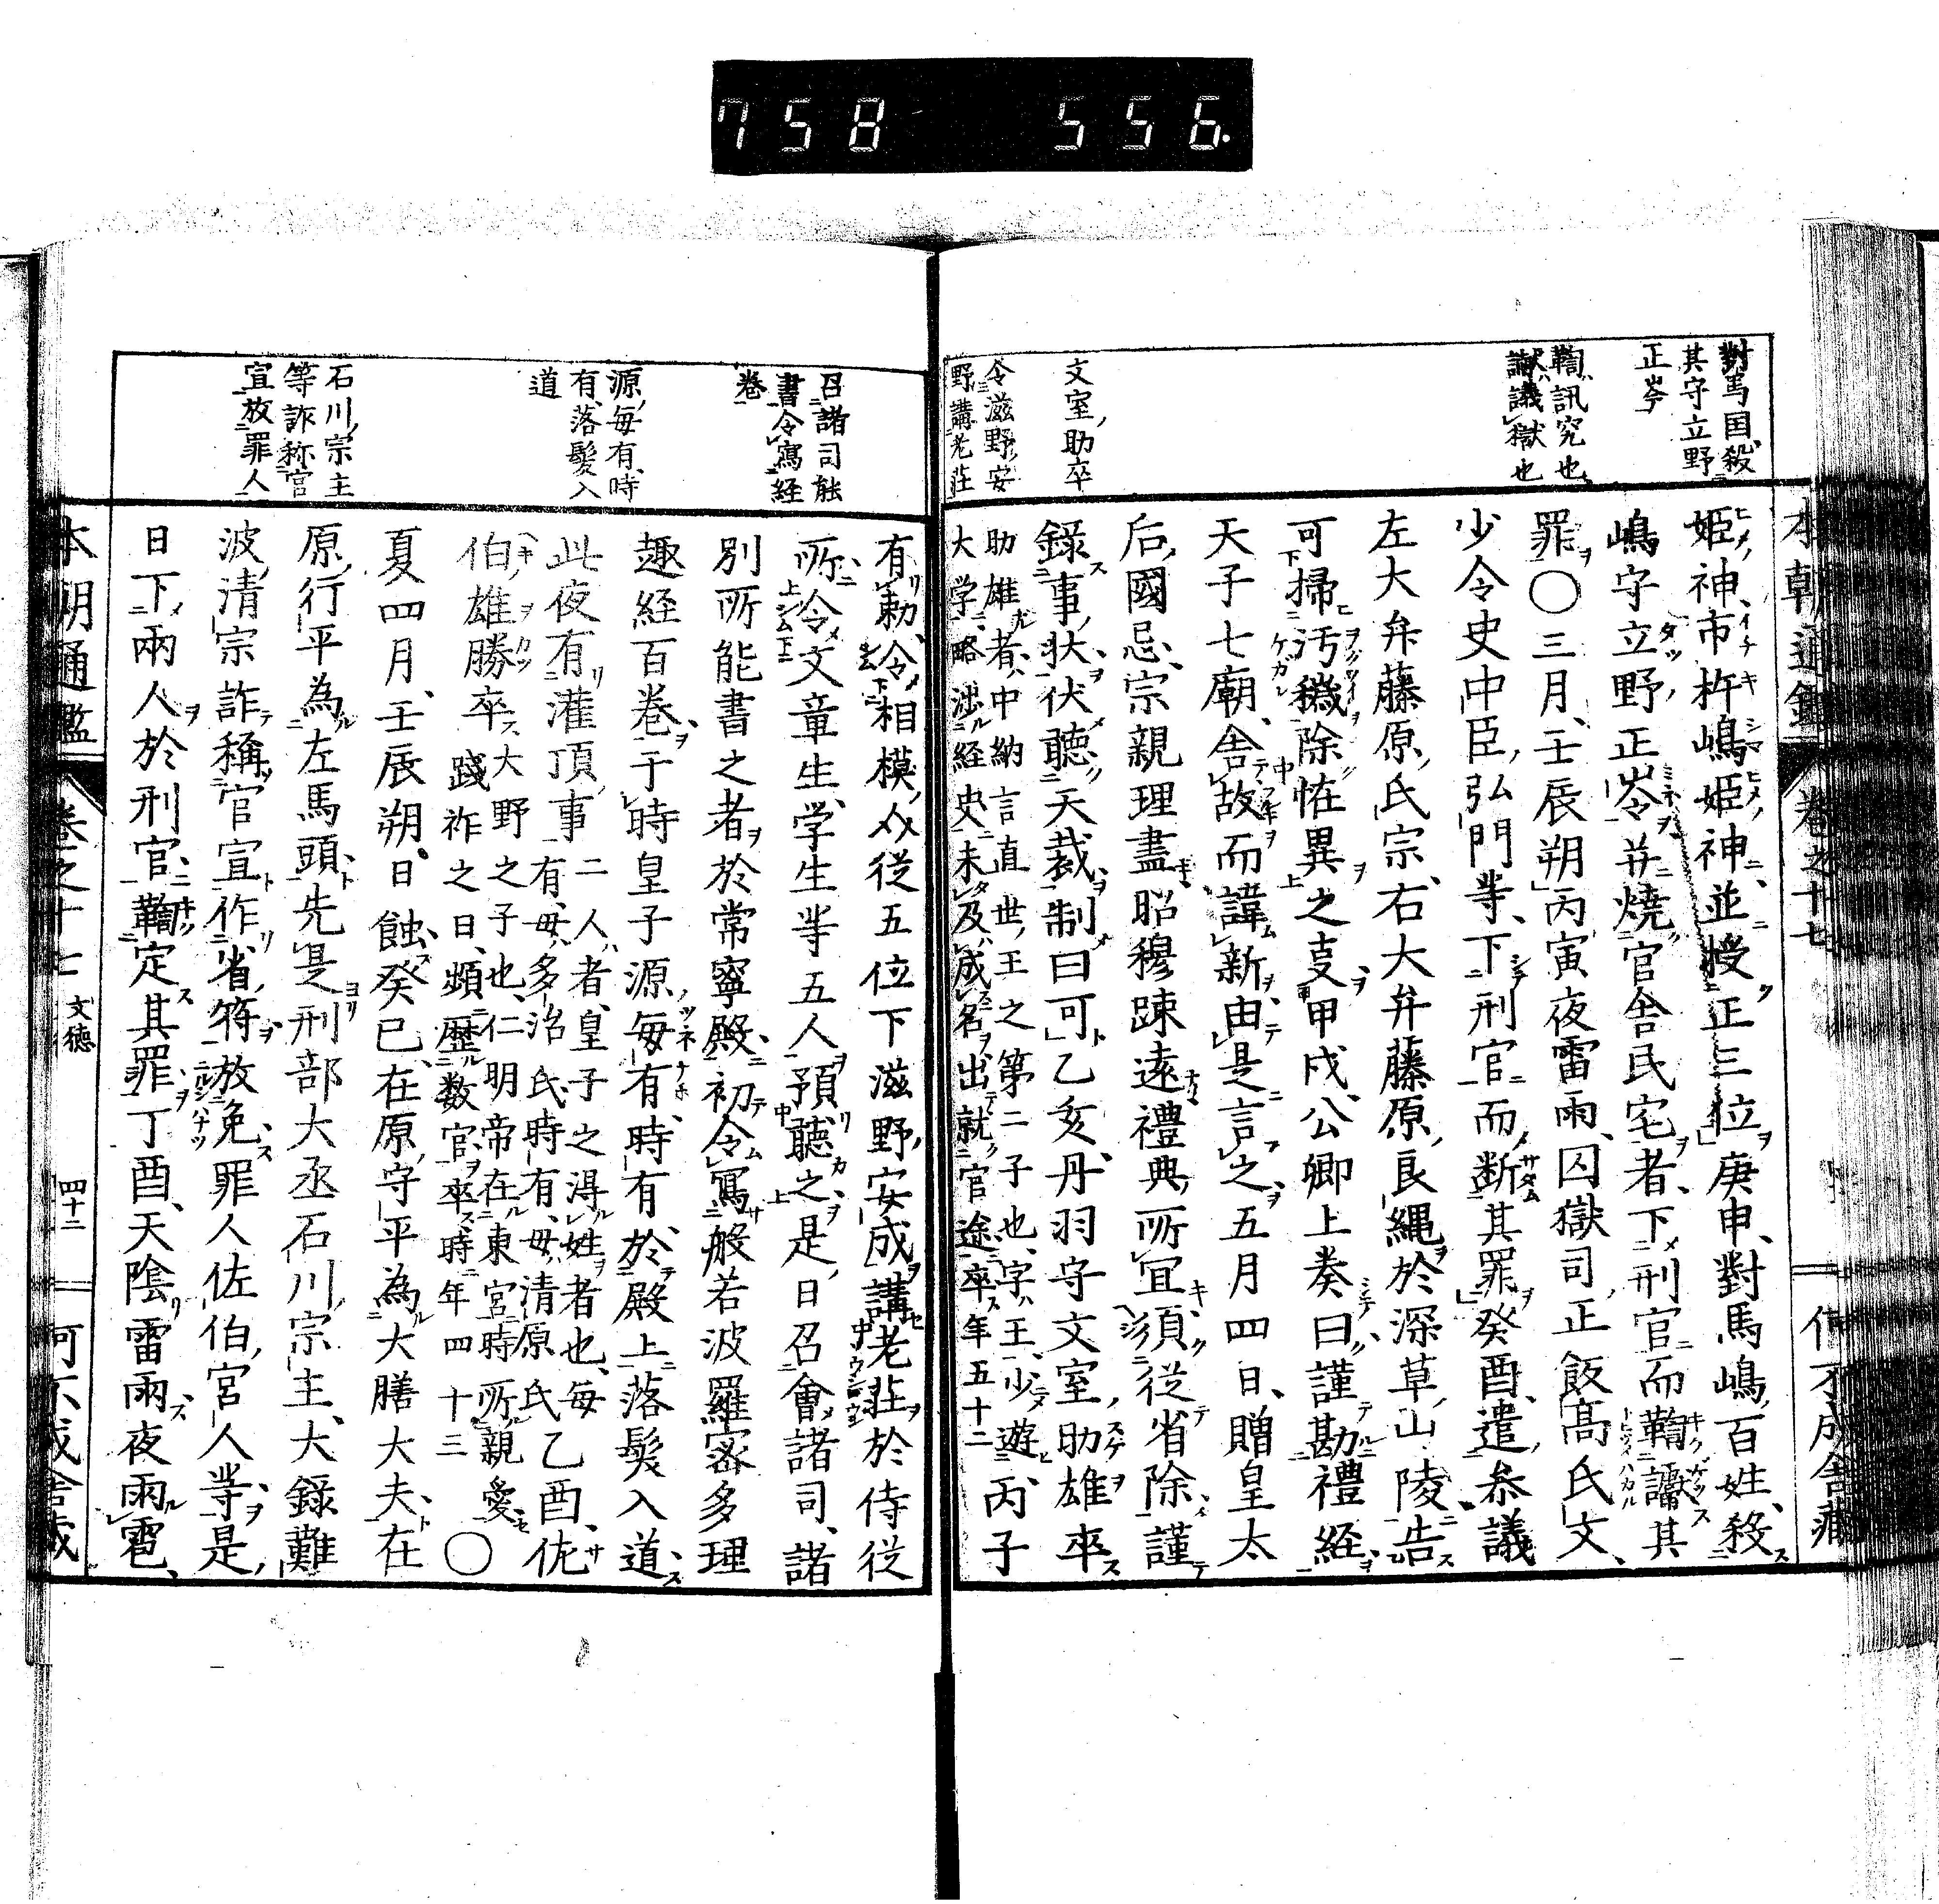 758 556.
本朝通鑑 巻之十七 何不成舎蔵
對馬国殺
其守立野
正岑
鞫訊究也
讞議獄也
文室助卒
令滋野安
野講老莊
姫神市杵嶋姫神並授正三位庚申對馬嶋百姓殺
嶋守立野正岑并燒官舎民宅者下刑官而鞫讞其
罪〇三月壬辰朔丙寅夜雷雨囚獄司正飯高氏文
少令史中臣弘門等下刑官而断其罪癸酉遣叅議
左大弁藤原氏宗右大弁藤原良縄於深草山陵告
可掃汚穢除恠異之支甲戌公卿上奏曰謹勘禮経
天子七廟舎故而諱新由是言之五月四日贈皇太
后國忌宗親理盡昭穆踈遠禮典所宜須従省除謹
錄事狀伏聽天裁制曰可乙亥丹羽守文室助雄卒
助雄者中納言直世王之第二子也字王少遊
大学略渉経史未及成名出就官途卒年五十二
丙子
召諸司能
書令寫経
巻
源毎有時
有落髮入
道
石川宗主
等詐称官
宣放罪人
有勅令相模从従五位下滋野安成講老莊於侍従
所令文章生学生等五人預聽之是日召會諸司諸
別所能書之者於常寧殿初令寫般若波羅密多理
趣経百巻于時皇子源毎有時有於殿上落髮入道
此夜有灌頂事
二人者皇子之得姓者也毎
有母多治氏時有母清原氏
乙酉佐
伯雄勝卒
大野之子也仁明帝在東宮時所親愛
踐祚之日頻歴数官卒時年四十三
〇
夏四月壬辰朔日蝕癸巳在原守平為大膳大夫在
原行平為左馬頭先是刑部大丞石川宗主大錄難
波清宗詐稱官宣作省符放免罪人佐伯宮人等是
日下兩人於刑官鞫定其罪丁酉天陰雷雨夜雨雹
本朝通鑑 巻之十七 文徳 四十二 何不成舎蔵